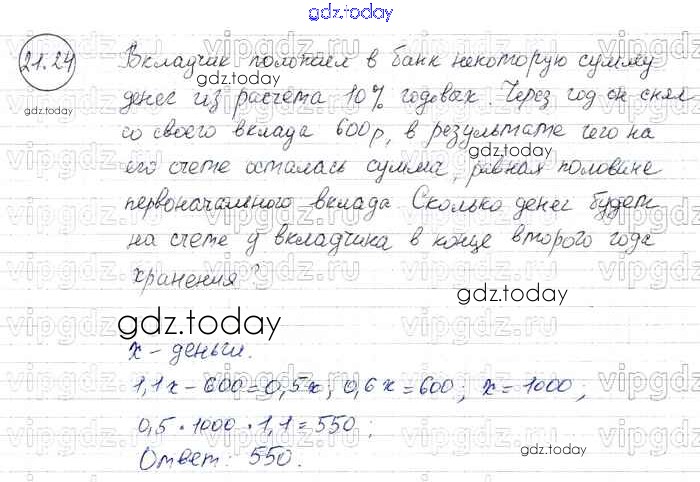 gdz.today
21.24
Вкладчик положил в банк некоторую сумму
gdz.today
денег из расчёта 10% годовых. Через год он снял
gdz.today
со своего вклада 600р, в результате чего на
gdz.today
его счете осталась сумма, равная половине
первоначального вклада. Сколько денег будет
на счете у вкладчика в конце второго года
хранения?
gdz.today
gdz.today
x - деньги.
1,1x - 600 = 0,5x; 0,6x = 600; x = 1000;
0,5 · 1000 · 1,1 = 550;
gdz.today
Ответ: 550.